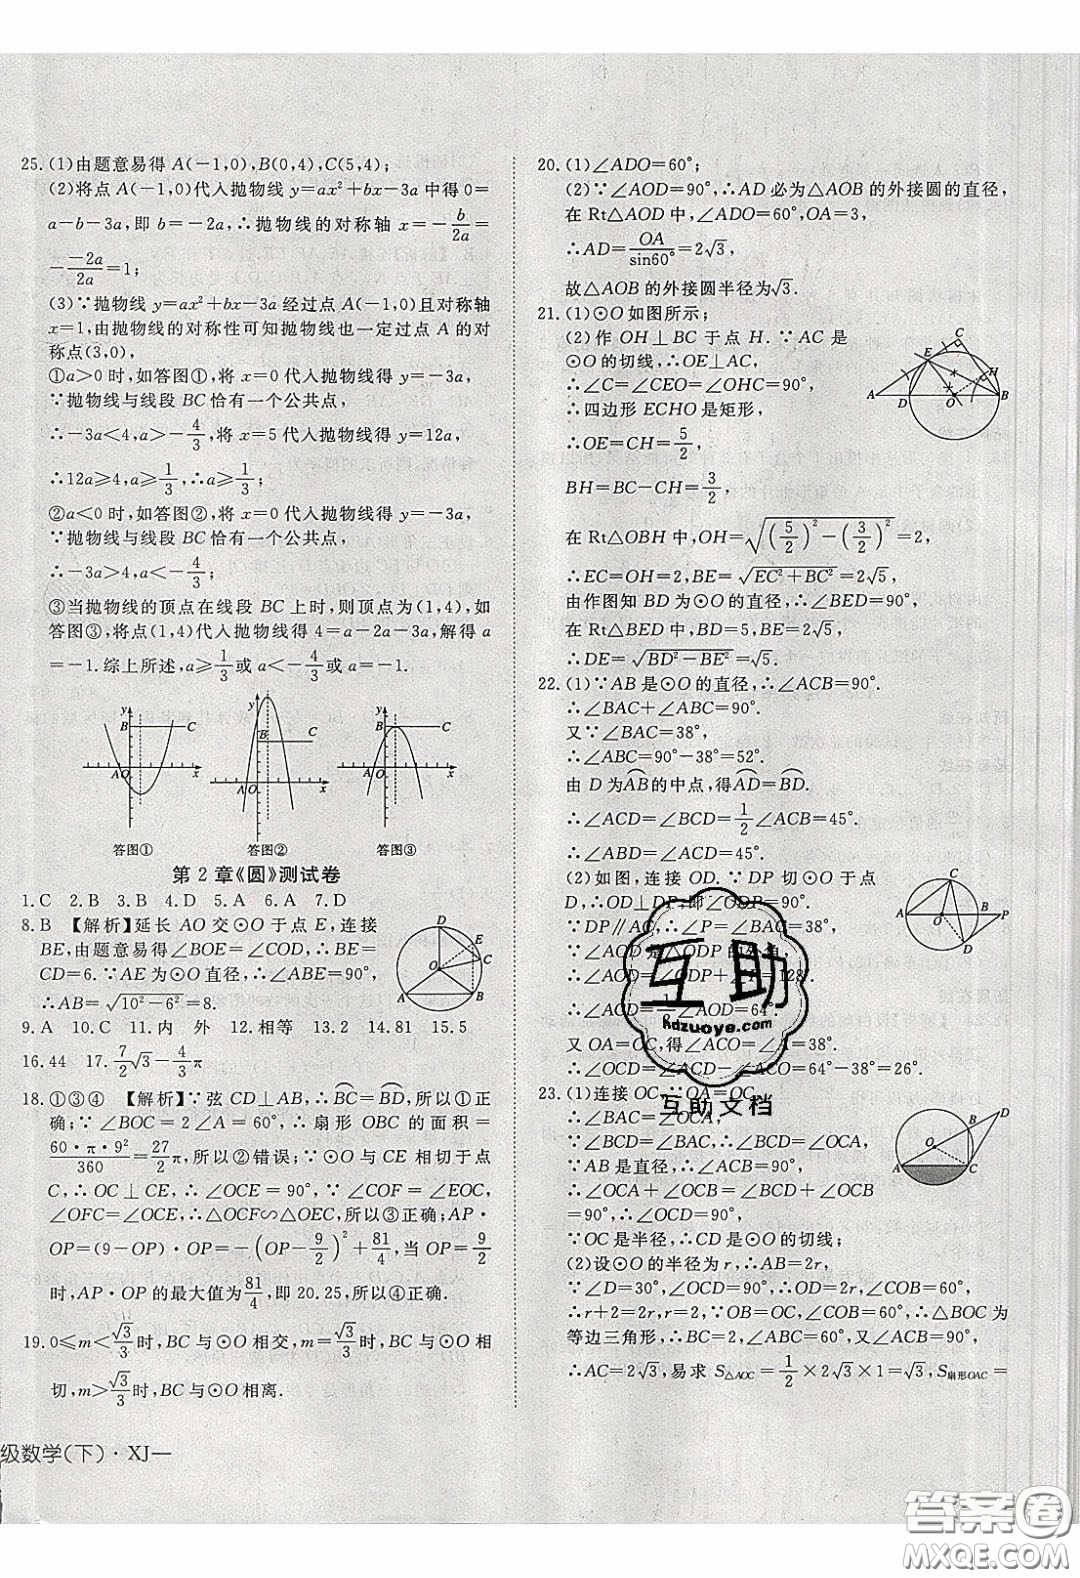 25.(1)由题意易得 A(-1,0),B(0,4),C(5,4);
(2)将点 A(-1,0)代入抛物线 y=ax²+bx-3a 中得 0=
a-b-3a,即 b=-2a,∴抛物线的对称轴 x=-b/2a=
-(-2a)/2a=1;
(3)∵抛物线 y=ax²+bx-3a 经过点 A(-1,0)且对称轴
x=1,由抛物线的对称性可知抛物线也一定过点 A 的对
称点(3,0),
①a>0 时,如答图①,将 x=0 代入抛物线得 y=-3a,
∵抛物线与线段 BC 恰有一个公共点,
∴-3a<4,a>-4/3,将 x=5 代入抛物线得 y=12a,
∴12a≥4,a≥1/3,∴a≥1/3;
②a<0 时,如答图②,将 x=0 代入抛物线得 y=-3a,
∵抛物线与线段 BC 恰有一个公共点,
∴-3a>4,∴a<-4/3;
③当抛物线的顶点在线段 BC 上时,则顶点为(1,4),如
答图③,将点(1,4)代入抛物线得 4=a-2a-3a,解得 a
=-1.综上所述,a≥1/3或 a<-4/3或 a=-1.
y B C A O x
y B C A O x
y B C A O x
答图① 答图② 答图③
第 2 章《圆》测试卷
1.C 2.B 3.B 4.D 5.A 6.A 7.D
8.B 【解析】延长 AO 交⊙O 于点 E,连接
BE,由题意易得∠BOE=∠COD,∴BE=
CD=6.∵AE 为⊙O 直径,∴∠ABE=90°,
∴AB=√(10²-6²)=8.
D E C O A B
9.A 10.C 11.内 外 12.相等 13.2 14.81 15.5
16.44 17.7/2√3-4/3π
18.①③④ 【解析】∵弦 CD⊥AB,∴BC=BD,所以①正
确;∵∠BOC=2∠A=60°,∴扇形 OBC 的面积=
60·π·9²/360=27/2π,所以②错误;∵⊙O 与 CE 相切于点
C,∴OC⊥CE,∴∠OCE=90°,∵∠COF=∠EOC,
∠OFC=∠OCE,∴△OCF∽△OEC,所以③正确;AP·
OP=(9-OP)·OP=-(OP-9/2)²+81/4,当 OP=9/2
时,AP·OP 的最大值为81/4,即 20.25,所以④正确.
19.0≤m<√3/3时,BC 与⊙O 相交,m=√3/3时,BC 与⊙O 相
切,m>√3/3时,BC 与⊙O 相离.
级数学(下)·XJ—
20.(1)∠ADO=60°;
(2)∵∠AOD=90°,∴AD 必为△AOB 的外接圆的直径,
在 Rt△AOD 中,∠ADO=60°,OA=3,
∴AD=OA/sin60°=2√3,
故△AOB 的外接圆半径为√3.
21.(1)⊙O 如图所示;
(2)作 OH⊥BC 于点 H.∵AC 是
⊙O 的切线,∴OE⊥AC,
∴∠C=∠CEO=∠OHC=90°,
∴四边形 ECHO 是矩形,
∴OE=CH=5/2,
BH=BC-CH=3/2,
C E H A D O B
在 Rt△OBH 中,OH=√((5/2)²-(3/2)²)=2,
∴EC=OH=2,BE=√(EC²+BC²)=2√5,
由作图知 BD 为⊙O 的直径,∴∠BED=90°,
在 Rt△BED 中,BD=5,BE=2√5,
∴DE=√(BD²-BE²)=√5.
22.(1)∵AB 是⊙O 的直径,∴∠ACB=90°.
∴∠BAC+∠ABC=90°.
又∵∠BAC=38°,
∴∠ABC=90°-38°=52°.
由 D 为AB的中点,得AD=BD.
∴∠ACD=∠BCD=1/2∠ACB=45°.
∴∠ACD=45°.
(2)如图,连接 OD.∵DP 切⊙O 于点
D,∴OD⊥DP,即∠ODP=90°.
∵DP∥AC,∴∠P=∠BAC=38°.
∵∠AOD 是△ODP 的外角,
∴∠AOD=∠ODP+∠P=128°.
∴∠ACD=1/2∠AOD=64°.
又 OA=OC,得∠ACO=∠A=38°.
∴∠OCD=∠ACD-∠ACO=64°-38°=26°.
C A O B P D
23.(1)连接 OC,∵OA=OC,
∴∠BAC=∠OCA,
∵∠BCD=∠BAC,∴∠BCD=∠OCA,
∵AB 是直径,∴∠ACB=90°,
∴∠OCA+∠OCB=∠BCD+∠OCB
=90°,∴∠OCD=90°,
∵OC 是半径,∴CD 是⊙O 的切线;
(2)设⊙O 的半径为 r,∴AB=2r,
∵∠D=30°,∠OCD=90°,∴OD=2r,∠COB=60°,
∴r+2=2r,r=2,∵OB=OC,∠COB=60°,∴△BOC 为
等边三角形,∴BC=2,∠ABC=60°,又∠ACB=90°,
∴AC=2√3,易求 S△AOC=1/2×2√3×1=√3,S扇形OAC=
D B O A C
互助
Hdzuoye.com
互助文档
答案圈
MXQE.COM